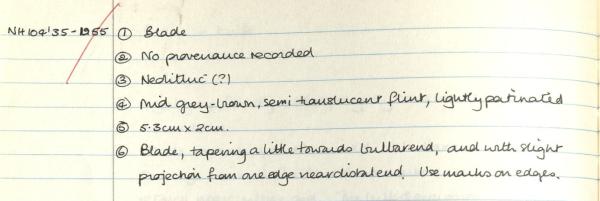 NH104'35-1955 ① Blade
② No provenance recorded
③ Neolithic (?)
④ Mid grey-brown, semi translucent flint, lightly patinated
⑤ 5.3cm x 2cm.
⑥ Blade, tapering a little towards bulbar end, and with slight
projection from one edge near distal end. Use marks on edges.